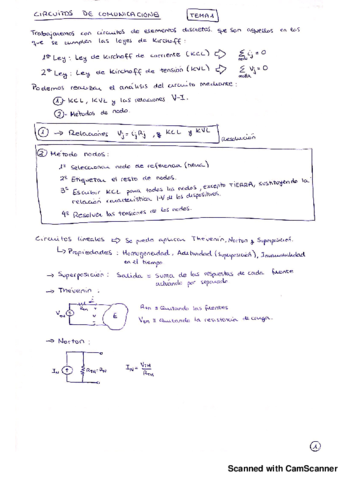 CIRCUITOS DE COMUNICACIONES TEMA 1
Trabajaremos con circuitos de elementos discretos, que son aquellos en los
que se cumplen las leyes de Kirchoff:
1ª Ley: Ley de Kirchoff de corriente (KCL) ⇨ Σ ij = 0
nodo
2ª Ley: Ley de Kirchoff de tensión (KVL) ⇨ Σ Vj = 0
malla
Podemos realizar el análisis del circuito mediante:
①- KCL, KVL y las relaciones V-I.
②- Métodos de nodo.
① → Relaciones Vj = ij Rj, y KCL y KVL
Resolución
② Método nodos:
1º Seleccionar nodo de referencia
2º Etiquetar el resto de nodos.
3º Escribir KCL para todos los nodos, excepto TIERRA, sustituyendo la
relación característica I-V de los dispositivos.
4º Resolver las tensiones de los nodos.
Circuitos lineales ⇨ Se puede aplicar Thevenin, Norton y Superposición.
↳ Propiedades: Homogeneidad, Aditividad (Superposición), Invariabilidad
en el tiempo
→ Superposición: Salida = Suma de las respuestas de cada fuente
actuando por separado
→ Thévenin:
RTH = Quitando las fuentes
VTH = Quitando la resistencia de carga.
→ Norton:
IN RTH = RN IN = VTH / RTH
①
Scanned with CamScanner